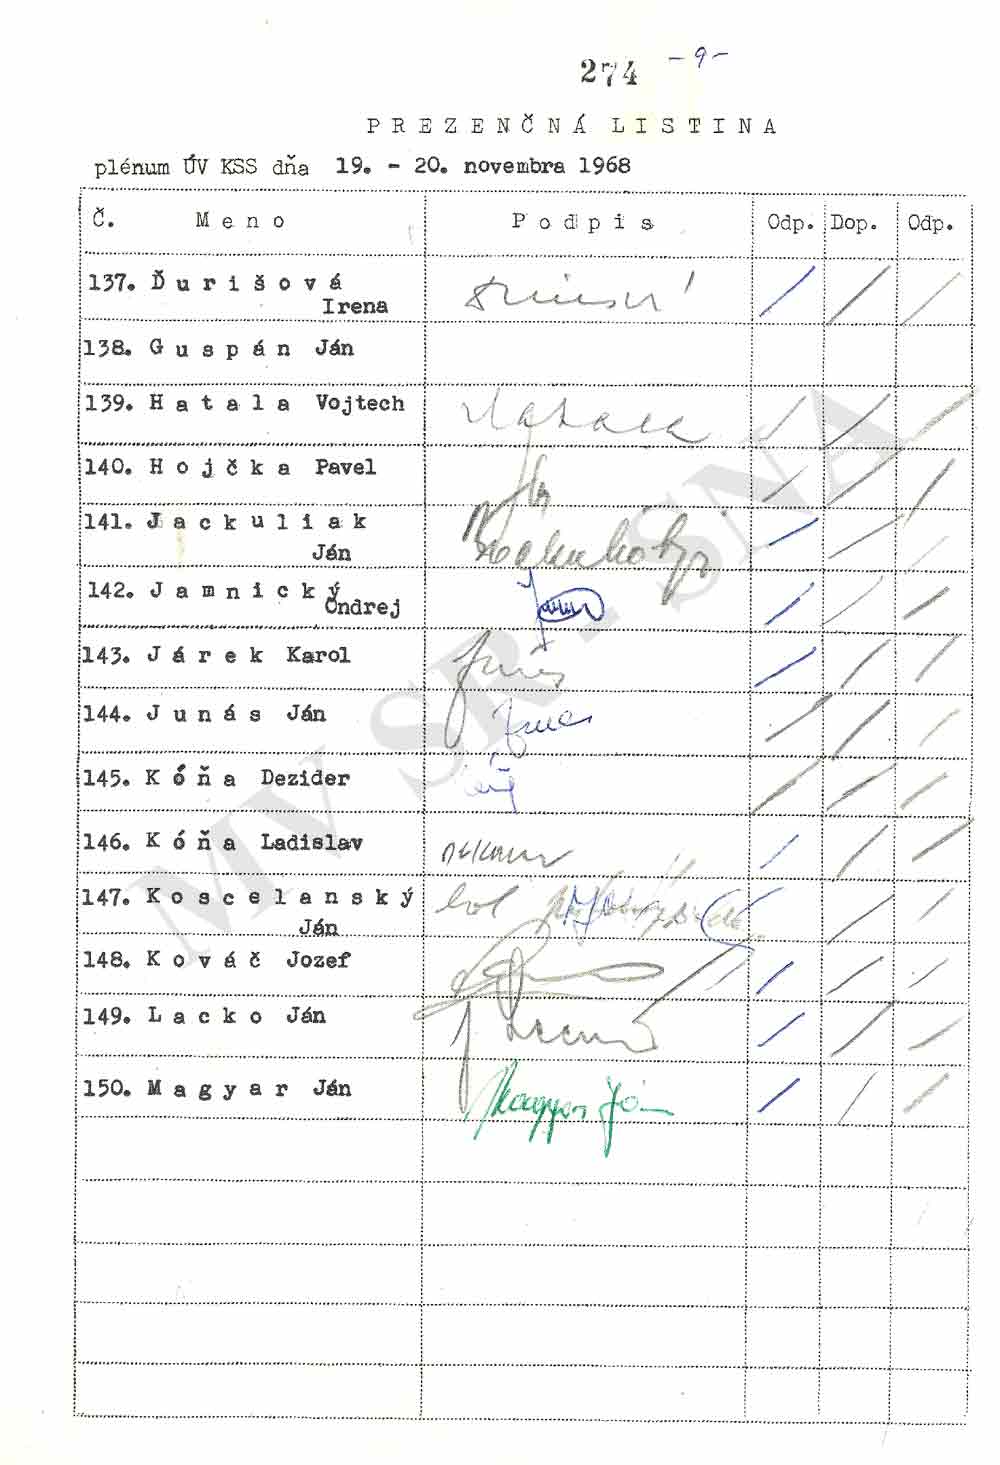 274 -9-
PREZENČNÁ LISTINA
plénum ÚV KSS dňa 19. - 20. novembra 1968
Č. Meno Podpis Odp. Dop. Odp.
137. Ďurišová
Irena
138. Guspán Ján
139. Hatala Vojtech
140. Hojčka Pavel
141. Jackuliak
Ján
142. Jamnický
Ondrej
143. Járek Karol
144. Junás Ján
145. Kóňa Dezider
146. Kóňa Ladislav
147. Koscelanský
Ján
148. Kováč Jozef
149. Lacko Ján
150. Magyar Ján Magyar Ján
MV SR - SNA